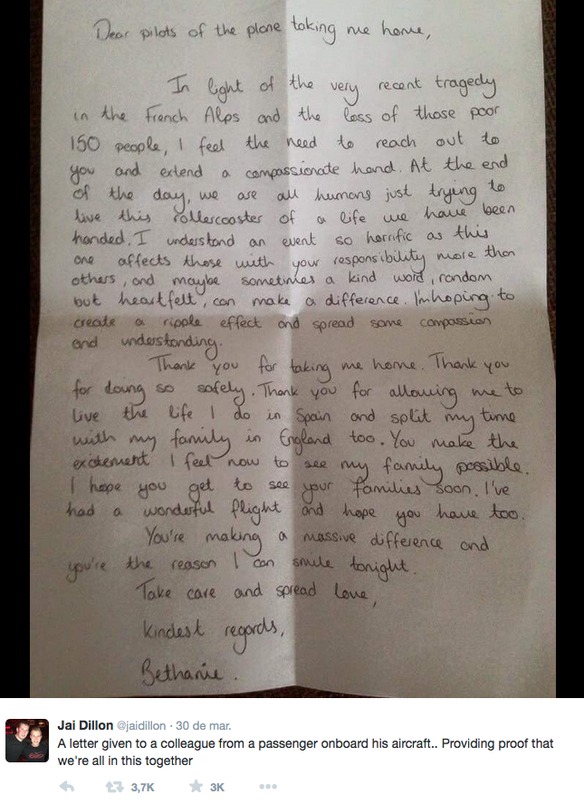 Dear pilots of the plane taking me home,
In light of the very recent tragedy
in the French Alps and the loss of those poor
150 people, I feel the need to reach out to
you and extend a compassionate hand. At the end
of the day, we are all humans just trying to
live this rollercoaster of a life we have been
handed. I understand an event so horrific as this
one affects those with your responsibility more than
others, and maybe sometimes a kind word, random
but heartfelt, can make a difference. I'm hoping to
create a ripple effect and spread some compassion
and understanding.
Thank you for taking me home. Thank you
for doing so safely. Thank you for allowing me to
live the life I do in Spain and split my time
with my family in England too. You make the
excitement I feel now to see my family possible.
I hope you get to see your families soon. I've
had a wonderful flight and hope you have too.
You're making a massive difference and
you're the reason I can smile tonight.
Take care and spread love,
kindest regards,
Bethanie.
Jai Dillon @jaidillon · 30 de mar.
A letter given to a colleague from a passenger onboard his aircraft.. Providing proof that
we're all in this together
3,7K 3K